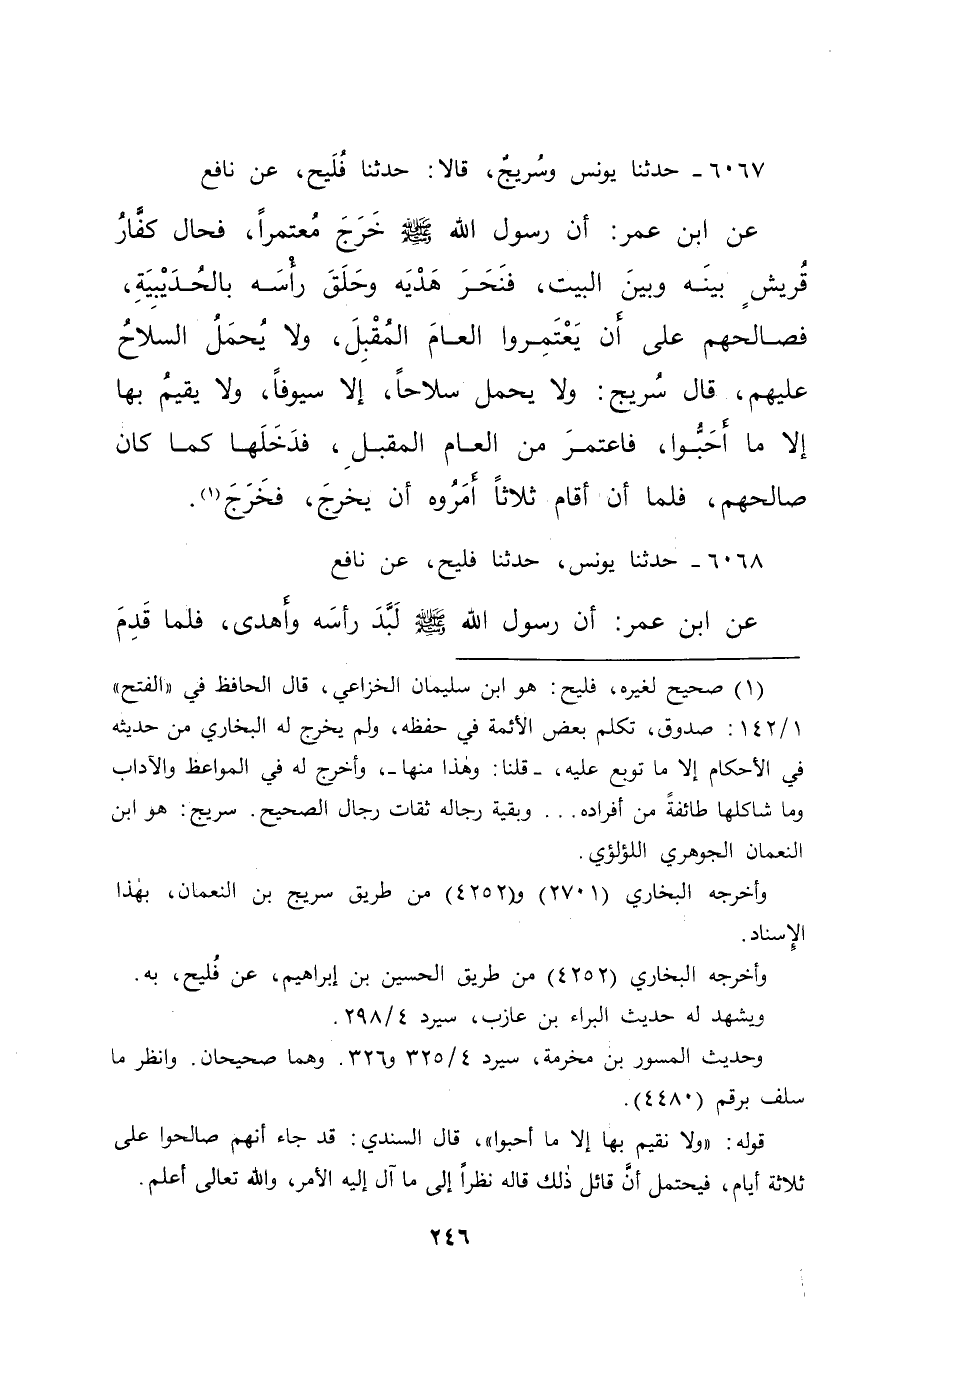 ٦٠٦٧ـ حدثنا يونس وسُريجٌ، قالا: حدثنا فُلَيح، عن نافع
عن ابن عمر: أن رسول الله ﷺ خَرَجَ مُعتمراً، فحال كفَّارُ
قُريشٍ بينَـه وبينَ البيت، فنَحَرَ هَدْيَه وحَلَقَ رأْسَـه بالحُـدَيْبِيَةِ،
فصـالحهم على أَن يَعْتَمِـروا العـامَ المُقْبِلَ، ولا يُحمَلُ السلاحُ
عليهم، قال سُريج: ولا يحمل سلاحاً، إلا سيوفاً، ولا يقيمُ بها
إلا ما أَحَبُّـوا، فاعتمـرَ من العـام المقبـلِ، فدَخَلَهـا كمـا كان
صالحهم، فلما أن أقام ثلاثاً أَمَرُوه أن يخرجَ، فخَرَجَ(١).
٦٠٦٨ـ حدثنا يونس، حدثنا فليح، عن نافع
عن ابن عمر: أن رسول الله ﷺ لَبَّدَ رأسَه وأَهدى، فلما قَدِمَ
(١) صحيح لغيره، فليح: هو ابن سليمان الخزاعي، قال الحافظ في «الفتح»
١٤٢/١: صدوق، تكلم بعض الأئمة في حفظه، ولم يخرج له البخاري من حديثه
في الأحكام إلا ما توبع عليه، ـ قلنا: وهٰذا منها ـ، وأخرج له في المواعظ والآداب
وما شاكلها طائفةً من أفراده... وبقية رجاله ثقات رجال الصحيح. سريج: هو ابن
النعمان الجوهري اللؤلؤي.
وأخرجه البخاري (٢٧٠١) و(٤٢٥٢) من طريق سريج بن النعمان، بهٰذا
الإِسناد.
وأخرجه البخاري (٤٢٥٢) من طريق الحسين بن إبراهيم، عن فُليح، به.
ويشهد له حديث البراء بن عازب، سيرد ٢٩٨/٤.
وحديث المسور بن مخرمة، سيرد ٣٢٥/٤ و٣٢٦. وهما صحيحان. وانظر ما
سلف برقم (٤٤٨٠).
قوله: «ولا نقيم بها إلا ما أحبوا»، قال السندي: قد جاء أنهم صالحوا على
ثلاثة أيام، فيحتمل أنَّ قائل ذٰلك قاله نظراً إلى ما آل إليه الأمر، والله تعالى أعلم.
٢٤٦